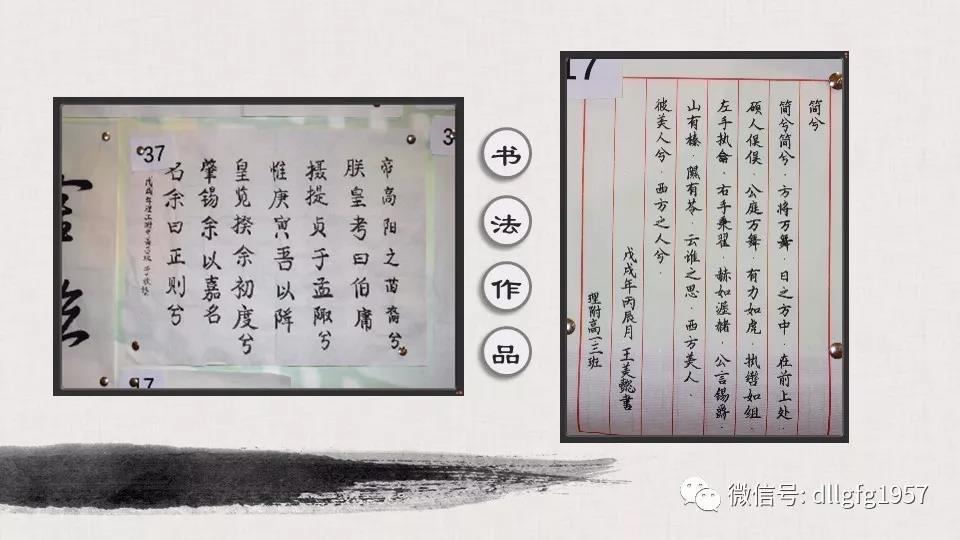 37
3
17
帝高阳之苗裔兮
朕皇考曰伯庸
摄提贞于孟陬兮
惟庚寅吾以降
皇览揆余初度兮
肇锡余以嘉名
名余曰正则兮
书法作品
17
简兮
简兮简兮.方将万舞.日之方中.在前上处.
硕人俣俣.公庭万舞.有力如虎.执辔如组.
左手执龠.右手乘翟.赫如渥赭.公言锡爵.
山有榛.隰有苓.云谁之思.西方美人.
彼美人兮.西方之人兮.
戊戌年丙辰月 王美懿书
理附高一三班
微信号: dllgfg1957